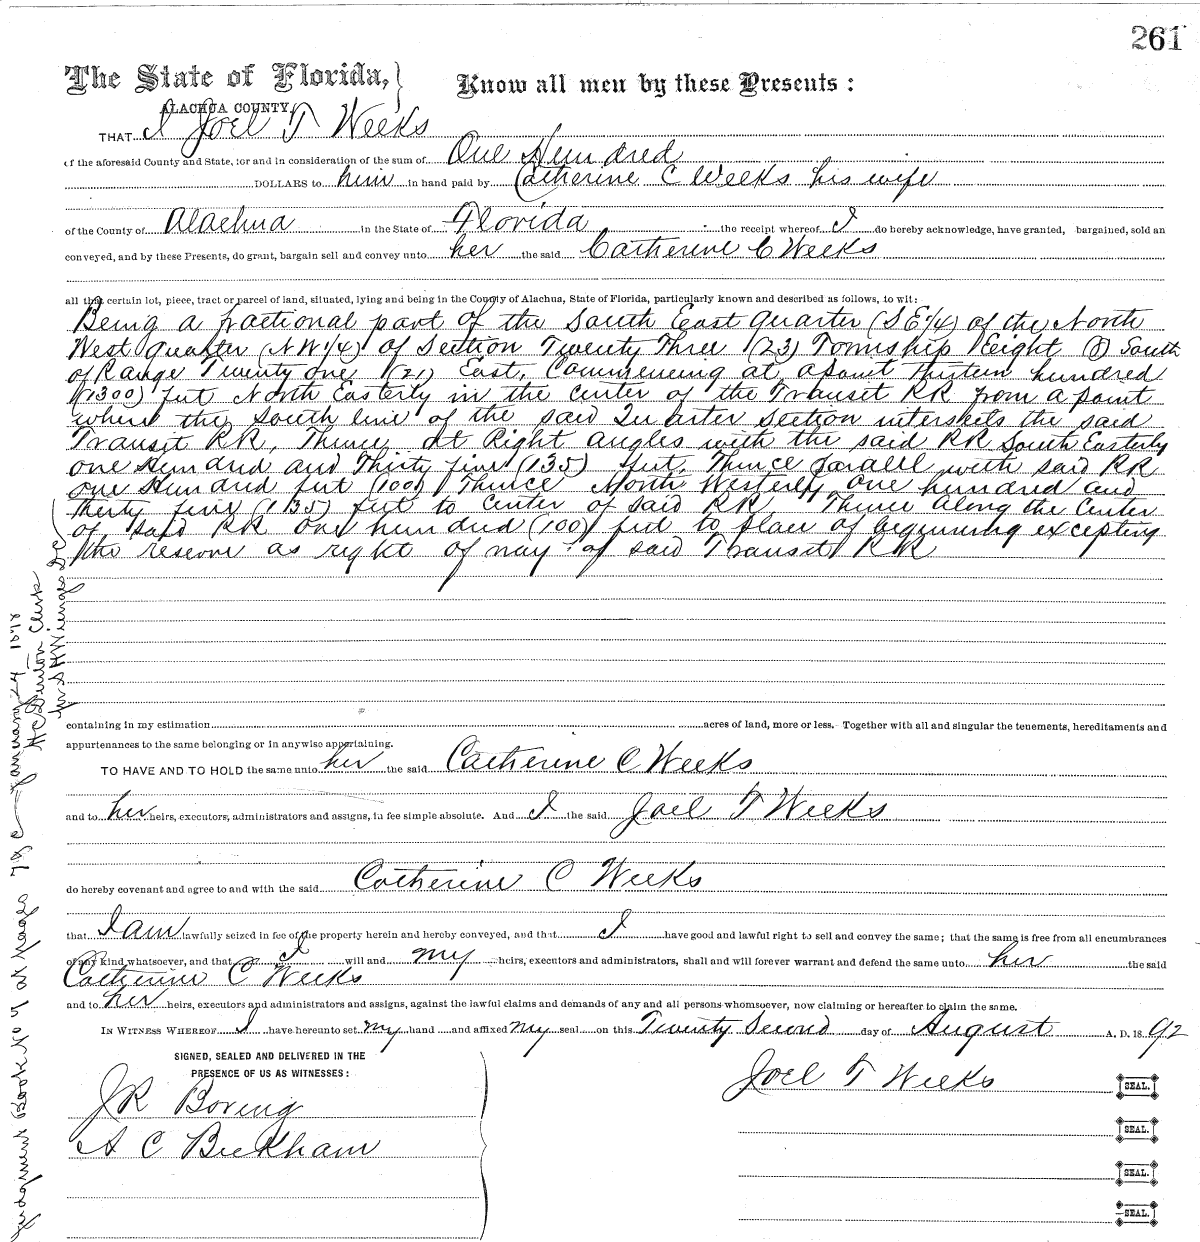 261
The State of Florida, } Know all men by these Presents :
ALACHUA COUNTY.
THAT I Joel T Weeks
of the aforesaid County and State, for and in consideration of the sum of One Hundred
DOLLARS to him in hand paid by Catherine C Weeks his wife
of the County of Alachua in the State of Florida the receipt whereof I do hereby acknowledge, have granted, bargained, sold an
conveyed, and by these Presents, do grant, bargain sell and convey unto her the said Catherine C Weeks
all that certain lot, piece, tract or parcel of land, situated, lying and being in the County of Alachua, State of Florida, particularly known and described as follows, to wit:
Being a fractional part of the South East quarter (S E 1/4) of the North
West quarter (NW 1/4) of Section Twenty Three (23) Township Eight (8) South
of Range Twenty one (21) East, Commencing at a point thirteen hundred
(1300) feet North Easterly in the center of the Transit RR from a point
where the South line of the said Quarter Section intersects the said
Transit RR, Thence at Right angles with the said RR South Easterly
one Hundred and Thirty five (135) feet, Thence parallel with said RR
one Hundred feet (100) Thence North Westerly one hundred and
thirty five (135) feet to center of said RR, Thence along the Center
of said RR one hundred (100) feet to place of beginning excepting
the reserve as right of way of said Transit RR
containing in my estimation acres of land, more or less. Together with all and singular the tenements, hereditaments and
appurtenances to the same belonging or in anywise appertaining.
TO HAVE AND TO HOLD the same unto her the said Catherine C Weeks
and to her heirs, executors, administrators and assigns, in fee simple absolute. And I the said Joel T Weeks
do hereby covenant and agree to and with the said Catherine C Weeks
that I am lawfully seized in fee of the property herein and hereby conveyed, and that I have good and lawful right to sell and convey the same; that the same is free from all encumbrances
of any kind whatsoever, and that I will and my heirs, executors and administrators, shall and will forever warrant and defend the same unto her the said
Catherine C Weeks
and to her heirs, executors and administrators and assigns, against the lawful claims and demands of any and all persons whomsoever, now claiming or hereafter to claim the same.
IN WITNESS WHEREOF I have hereunto set my hand and affixed my seal on this Twenty Second day of August A. D. 1892
SIGNED, SEALED AND DELIVERED IN THE
PRESENCE OF US AS WITNESSES :
Joel T Weeks SEAL.
J R Boring
SEAL.
A C Beckham
SEAL.
SEAL.
Judgment Book No at Page January 24
H C Denton Clerk
by S H Wienges DC